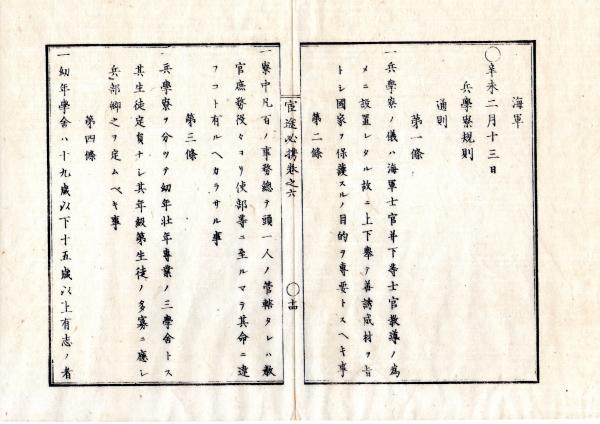 海軍
〇辛未二月十三日
兵學寮規則
通則
第一條
一兵學寮ノ儀ハ海軍士官幷下等士官教導ノ爲
メニ設置レタル故ニ上下擧テ善誘成材ヲ旨
トシ國家ヲ保護スルノ目的ヲ專要トスヘキ事
第二條
官途必携卷之六
〇十四
一寮中凡百ノ事務總テ頭一人ノ管轄タレハ教
官庶務役々ヨリ使部等ニ至ルマテ其命ニ違
フコト有ルヘカラサル事
第三條
一兵學寮ヲ分ツテ幼年壯年專業ノ三學舍トス
其生徒定員ナシ其年級第生徒ノ多寡ニ應シ
兵部卿之ヲ定ムヘキ事
第四條
一幼年學舍ハ十九歳以下十五歳以上有志ノ者